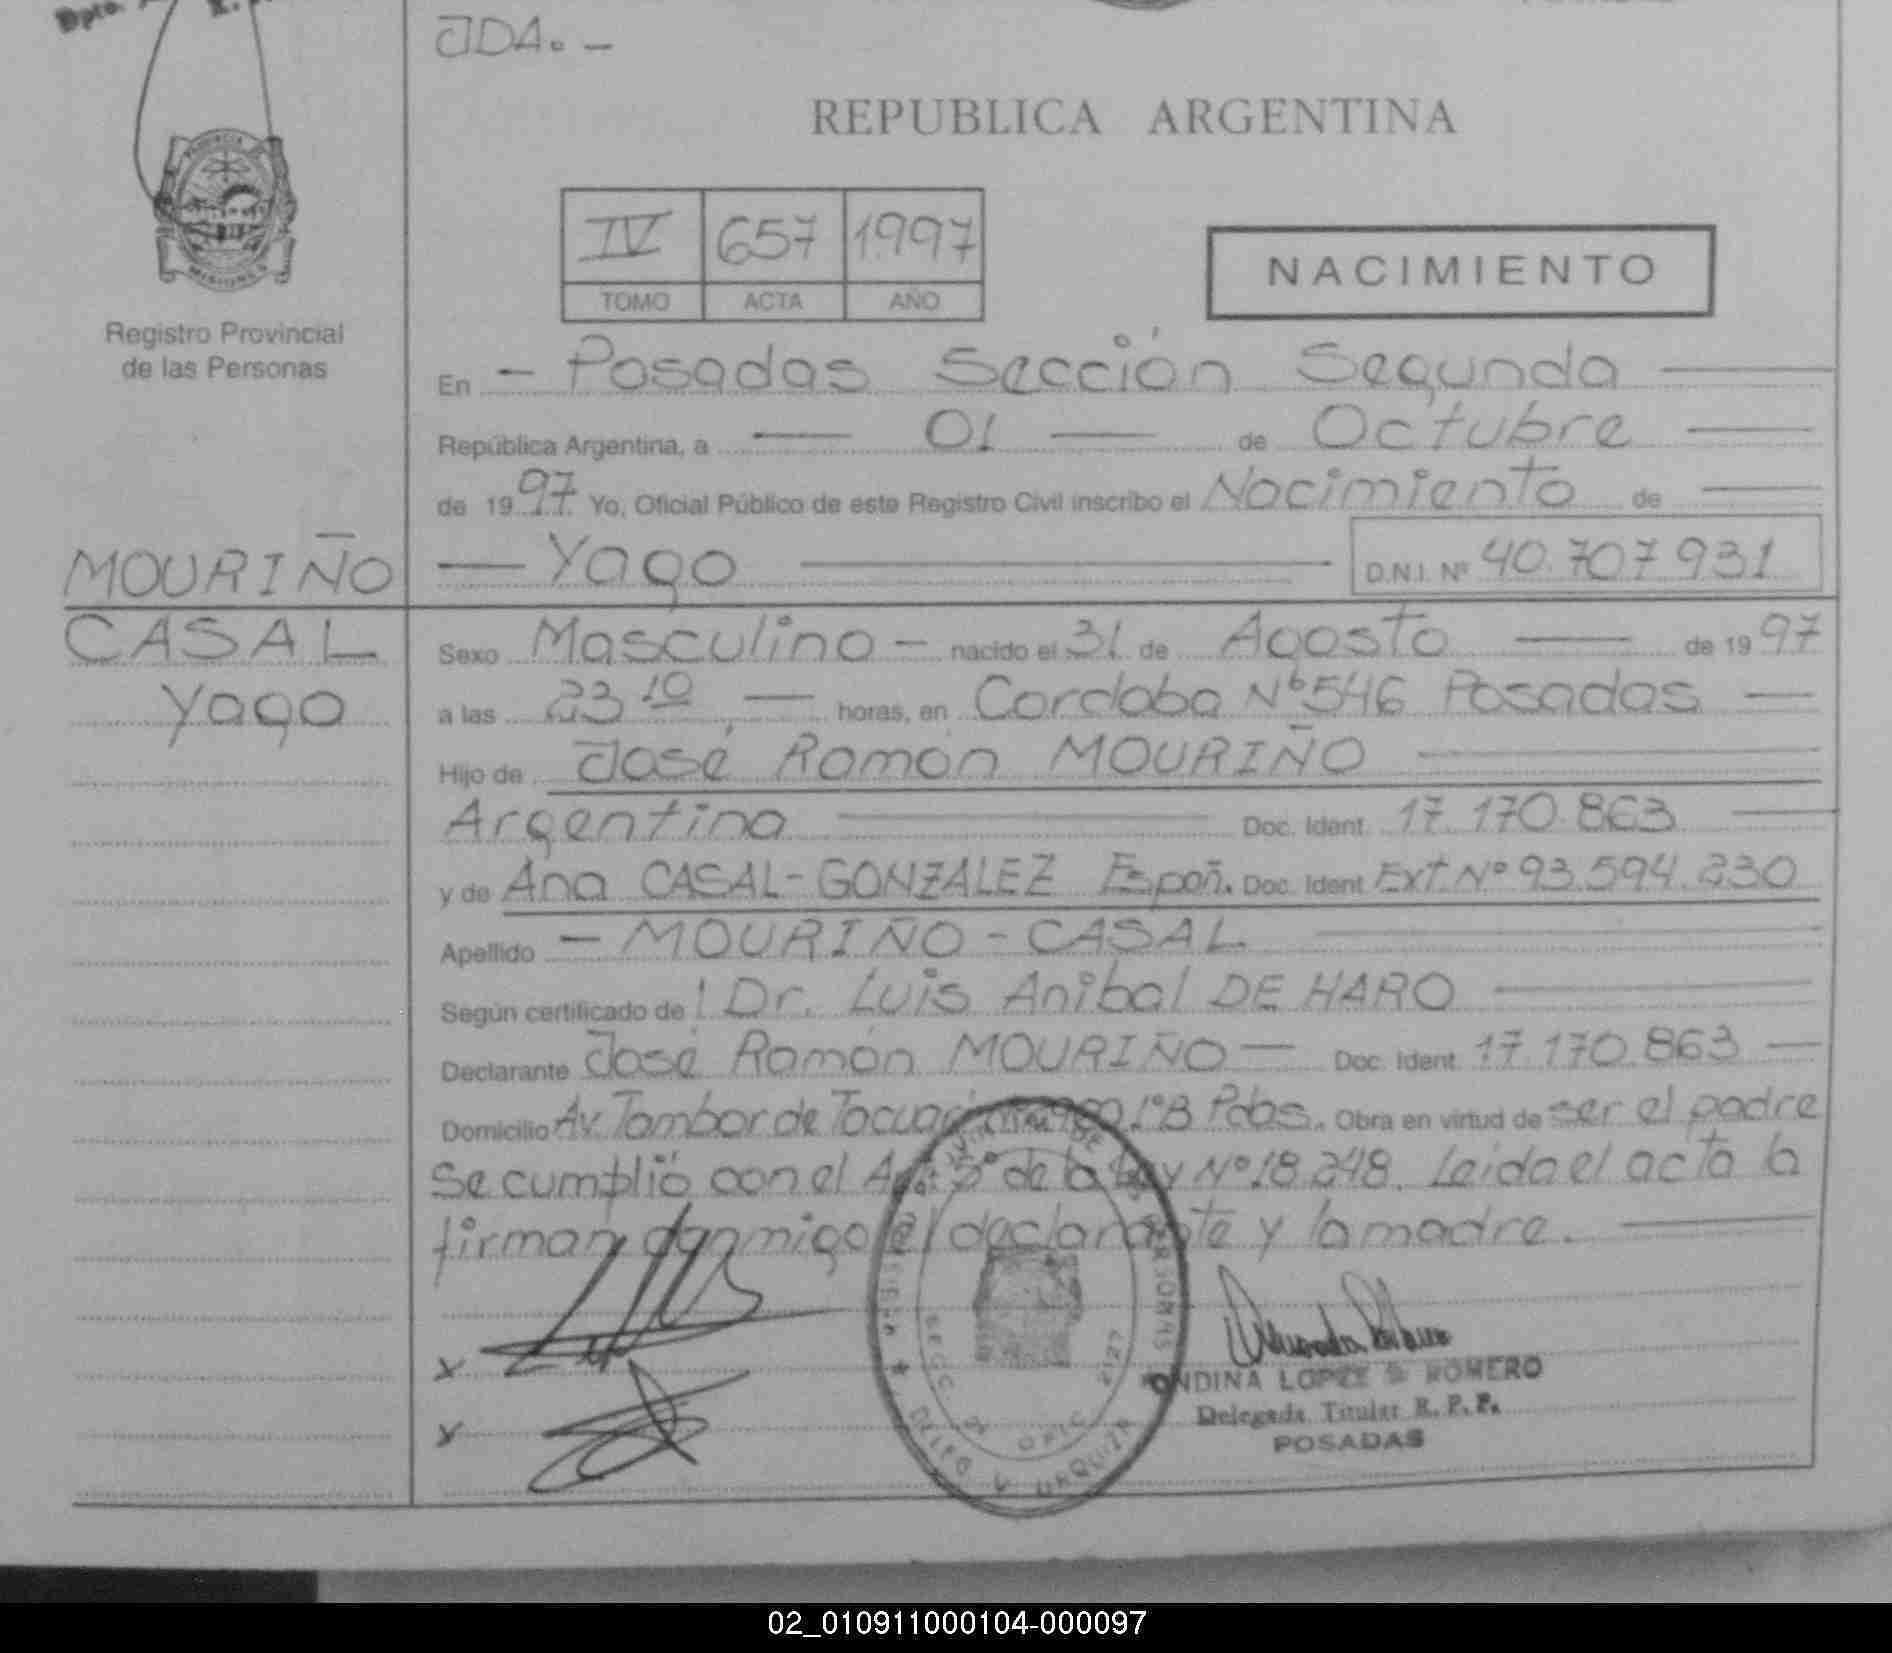 Dpto.
JDA. -
REPUBLICA ARGENTINA
IV 657 1997
TOMO ACTA AÑO
NACIMIENTO
PROVINCIA
MISIONES
Registro Provincial
de las Personas
En - Posadas Sección Segunda
República Argentina, a 01 de Octubre
de 1997 Yo, Oficial Público de este Registro Civil inscribo el Nacimiento de
Yago D.N.I. Nº 40.707931
MOURIÑO
CASAL
Yago
Sexo Masculino - nacido el 31 de Agosto de 1997
a las 23 10, horas, en Cordoba Nº 546 Posadas
Hijo de José Ramón MOURIÑO
Argentina Doc. Ident. 17.170.863
y de Ana CASAL-GONZALEZ Españ. Doc. Ident. Ext. Nº 93.594.230
Apellido - MOURIÑO - CASAL
Según certificado de Dr. Luis Anibal DE HARO
Declarante José Ramón MOURIÑO Doc. Ident. 17.170.863
Domicilio Av. Tambor de 1ºB Pdas. Obra en virtud de ser el padre
Se cumplió con el Art. 5º de la Ley Nº 18.248. Leida el acta la
firman conmigo el declarante y la madre.
x
x
DE PERSONAS
SECC 2ª OFIC
URQUIZA
ONDINA LOPEZ ROMERO
Delegada Titular R. P. P.
POSADAS
02_010911000104-000097